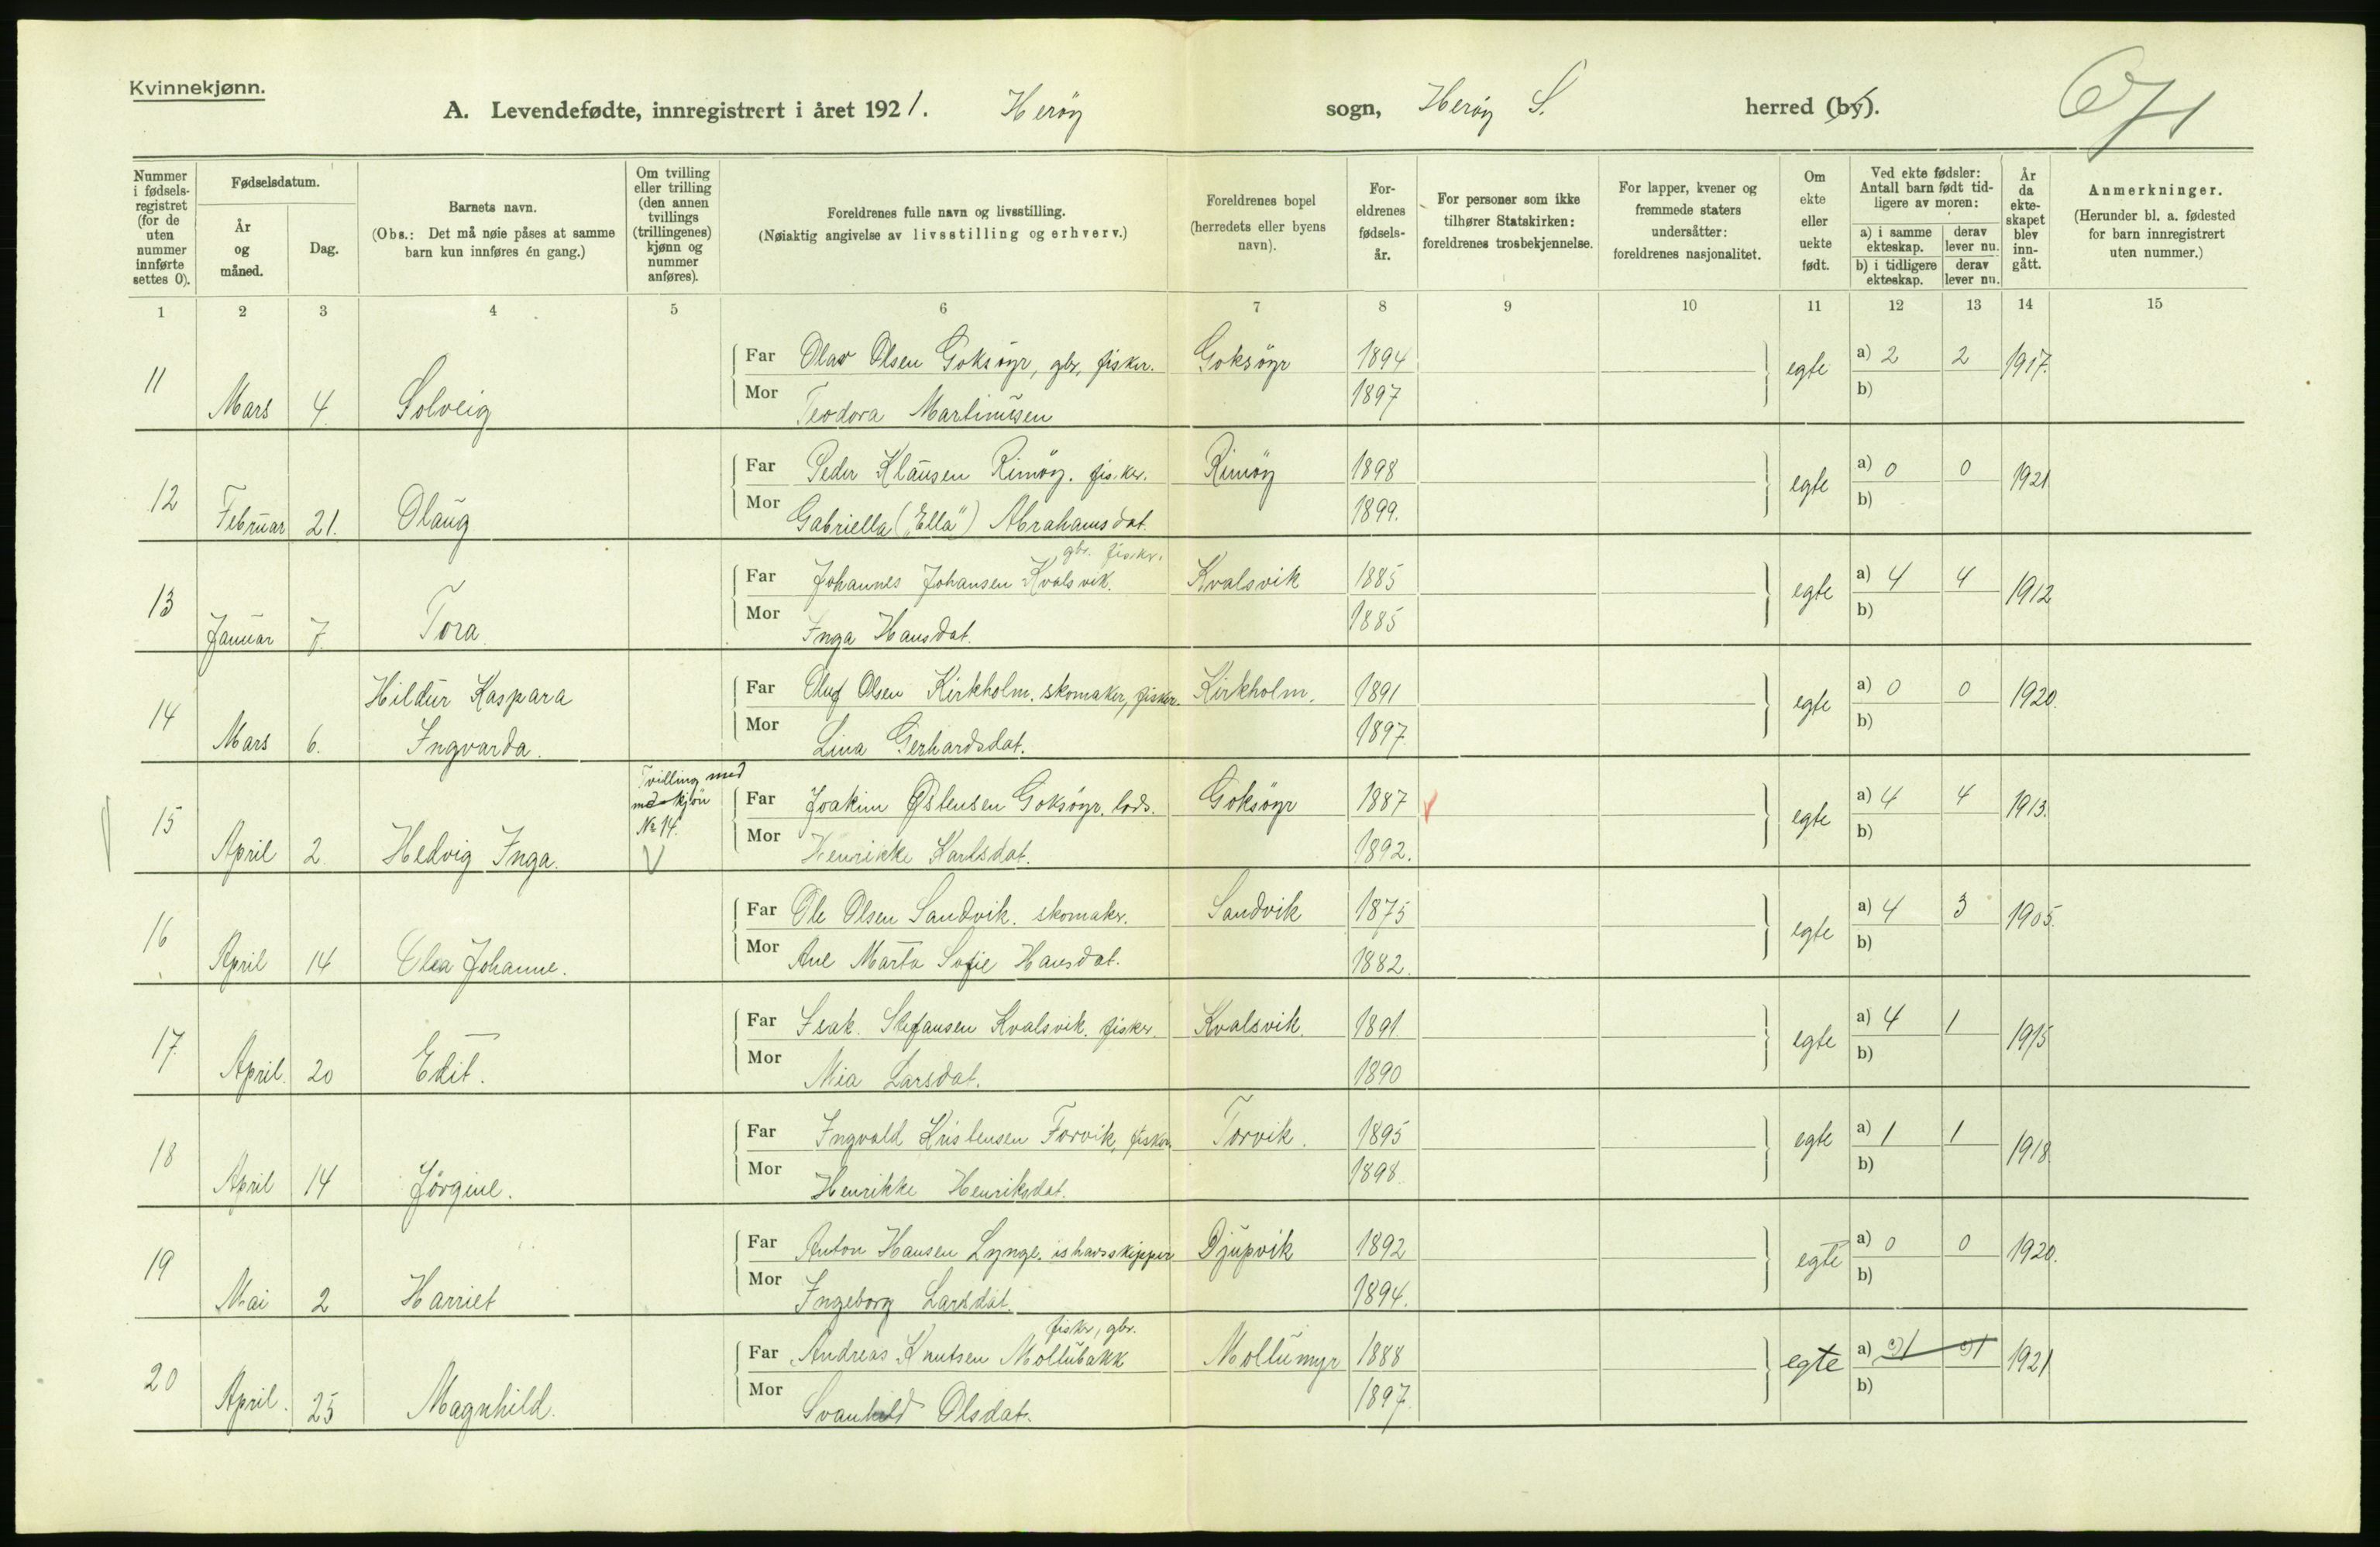 Kvinnekjønn.
A. Levendefødte, innregistrert i året 1921. Herøy sogn, Herøy S. herred (by).
Nummer i fødsels-registret (for de uten nummer innførte settes 0).
Fødselsdatum.
År og måned.
Dag.
Barnets navn.
(Obs.: Det må nøie påses at samme barn kun innføres én gang.)
Om tvilling eller trilling (den annen tvillings (trillingenes) kjønn og nummer anføres).
Foreldrenes fulle navn og livsstilling.
(Nøiaktig angivelse av livsstilling og erhverv.)
Foreldrenes bopel (herredets eller byens navn).
For-eldrenes fødsels-år.
For personer som ikke tilhører Statskirken: foreldrenes trosbekjennelse.
For lapper, kvener og fremmede staters undersåtter: foreldrenes nasjonalitet.
Om ekte eller uekte født.
Ved ekte fødsler: Antall barn født tid-ligere av moren:
a) i samme ekteskap. derav lever nu.
b) i tidligere ekteskap. derav lever nu.
År da ekte-skapet blev inn-gått.
Anmerkninger.
(Herunder bl. a. fødested for barn innregistrert uten nummer.)
1 2 3 4 5 6 7 8 9 10 11 12 13 14 15
11 Mars 4. Solveig
Far Olav Olsen Goksöyr, gbr, fisker. Goksöyr 1894 egte a) 2 2 1917.
Mor Teodora Martinusen 1897 b)
12 Februar 21. Olaug
Far Peder Klausen Rimöy. fisker. Rimöy 1898 egte a) 0 0 1921
Mor Gabriella („Ella") Abrahamsdat. 1899. b)
gbr. fisker.
13 Januar 7. Tora
Far Johannes Johansen Kvalsvik. Kvalsvik 1885 egte a) 4 4 1912
Mor Inga Hansdat. 1885 b)
14 Mars 6. Hildur Kaspara Ingvarda.
Far Oluf Olsen Kirkholm. skomaker, fisker. Kirkholm. 1891 egte a) 0 0 1920.
Mor Lina Gerhardsdat. 1897 b)
15 April 2. Hedvig Inga. Tvilling med kjön № 14.
Far Joakim Østensen Goksöyr, lods. Goksöyr 1887 egte a) 4 4 1913.
Mor Henrikke Karlsdat. 1892. b)
16 April 14 Johanne.
Far Ole Olsen Sandvik. skomaker. Sandvik 1875 egte a) 4 3 1905.
Mor Ane Marta Sofie Hansdat. 1882. b)
17. April. 20 Edit.
Far Isak. Stefansen Kvalsvik. fisker. Kvalsvik. 1891. egte a) 4 1 1915
Mor Mia Larsdat. 1890 b)
18 April 14 Jörgine.
Far Ingvald Kristensen Torvik, fisker Torvik. 1895 egte a) 1 1 1918.
Mor Henrikke Henriksdat. 1898. b)
19 Mai 2 Harriet
Far Anton Hansen Lynge. ishavsskipper Djupvik 1892 egte a) 0 0 1920.
Mor Ingeborg Larsdat. 1894. b)
fisker, gbr.
20 April. 25 Magnhild.
Far Andreas Knutsen Mollubakk Mollumyr 1888 egte a) 1921
Mor Svanhild Olsdat. 1897. b)